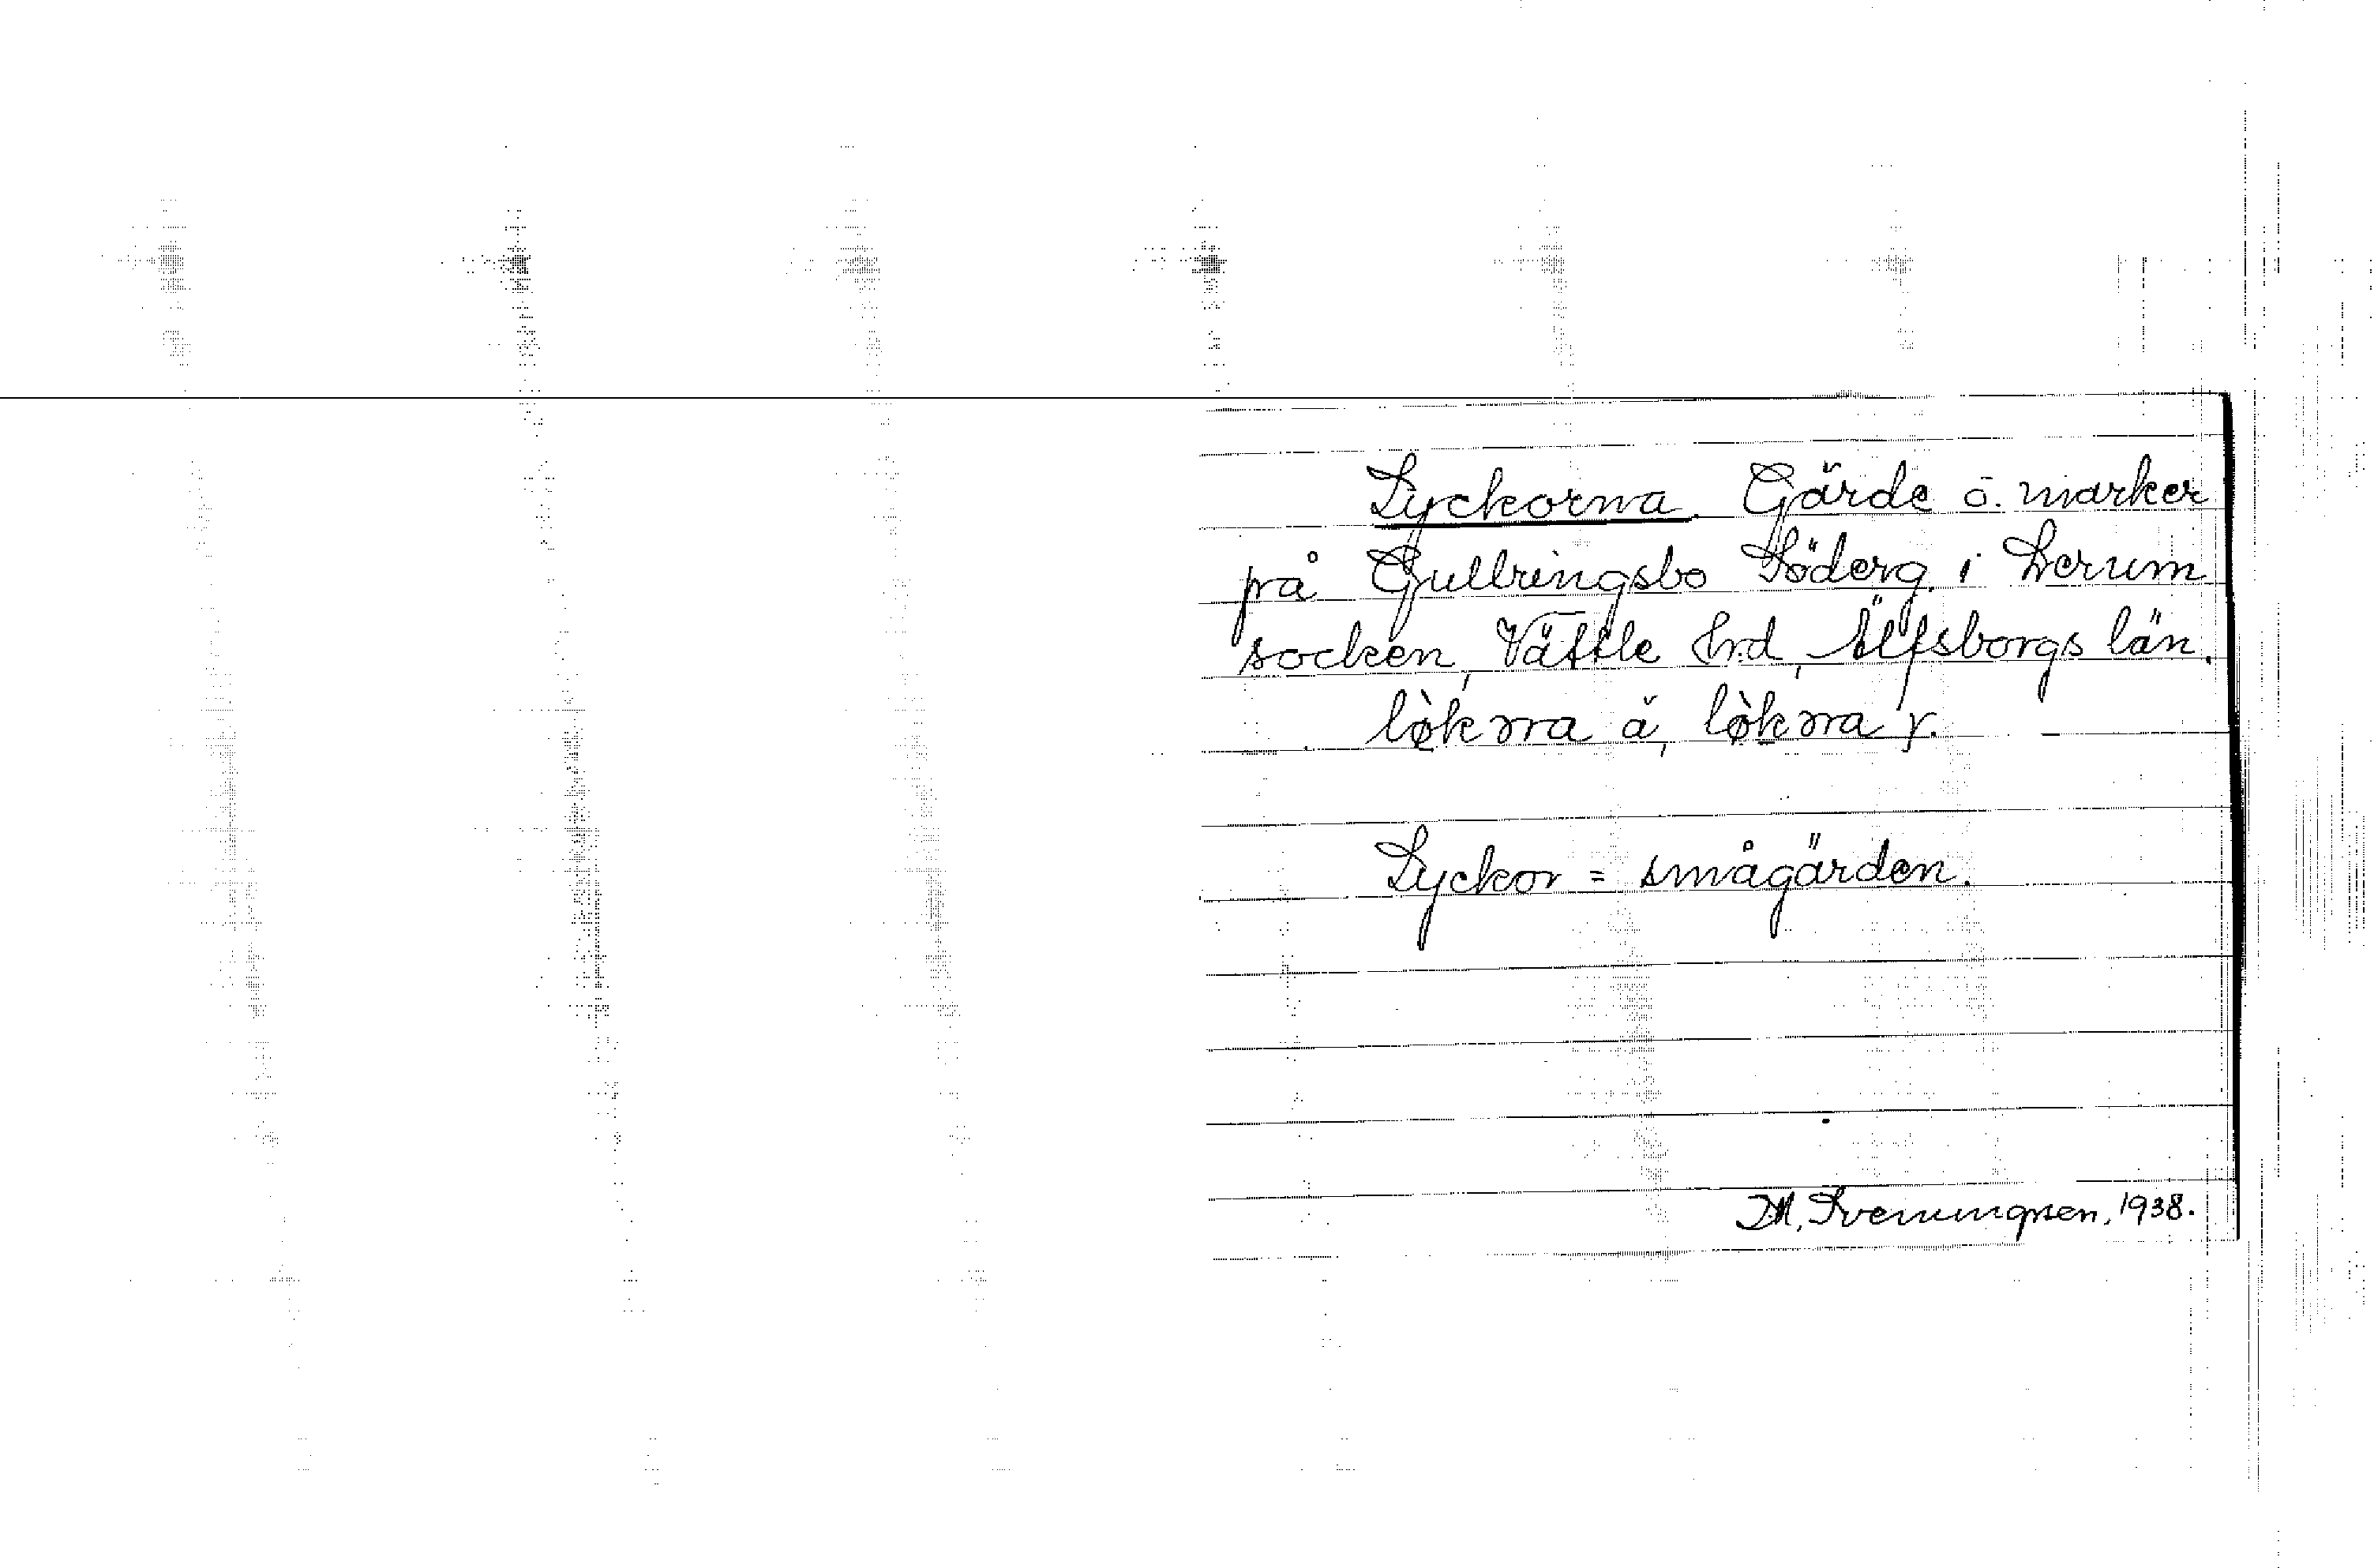 Lyckorna. Gärde o. marker
på Gullringsbo Söderg. i Lerum
socken, Vättle hrd, Älfsborgs län.
lø̀kɔrna ä, lø̀kɔrna y.
Lyckor = smågärden.
M. Svenungsen, 1938.